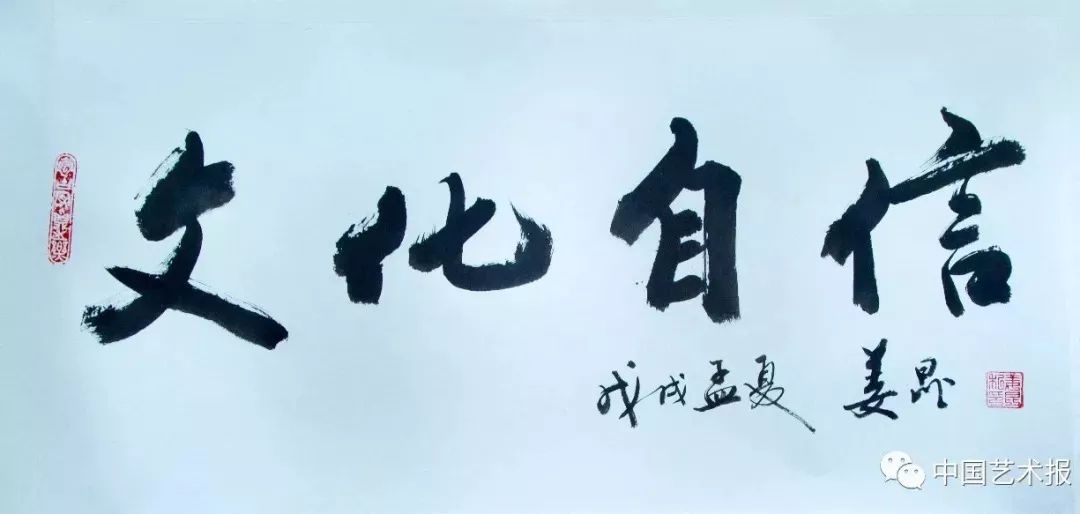 文化自信
戊戌孟夏 姜昆
中国艺术报